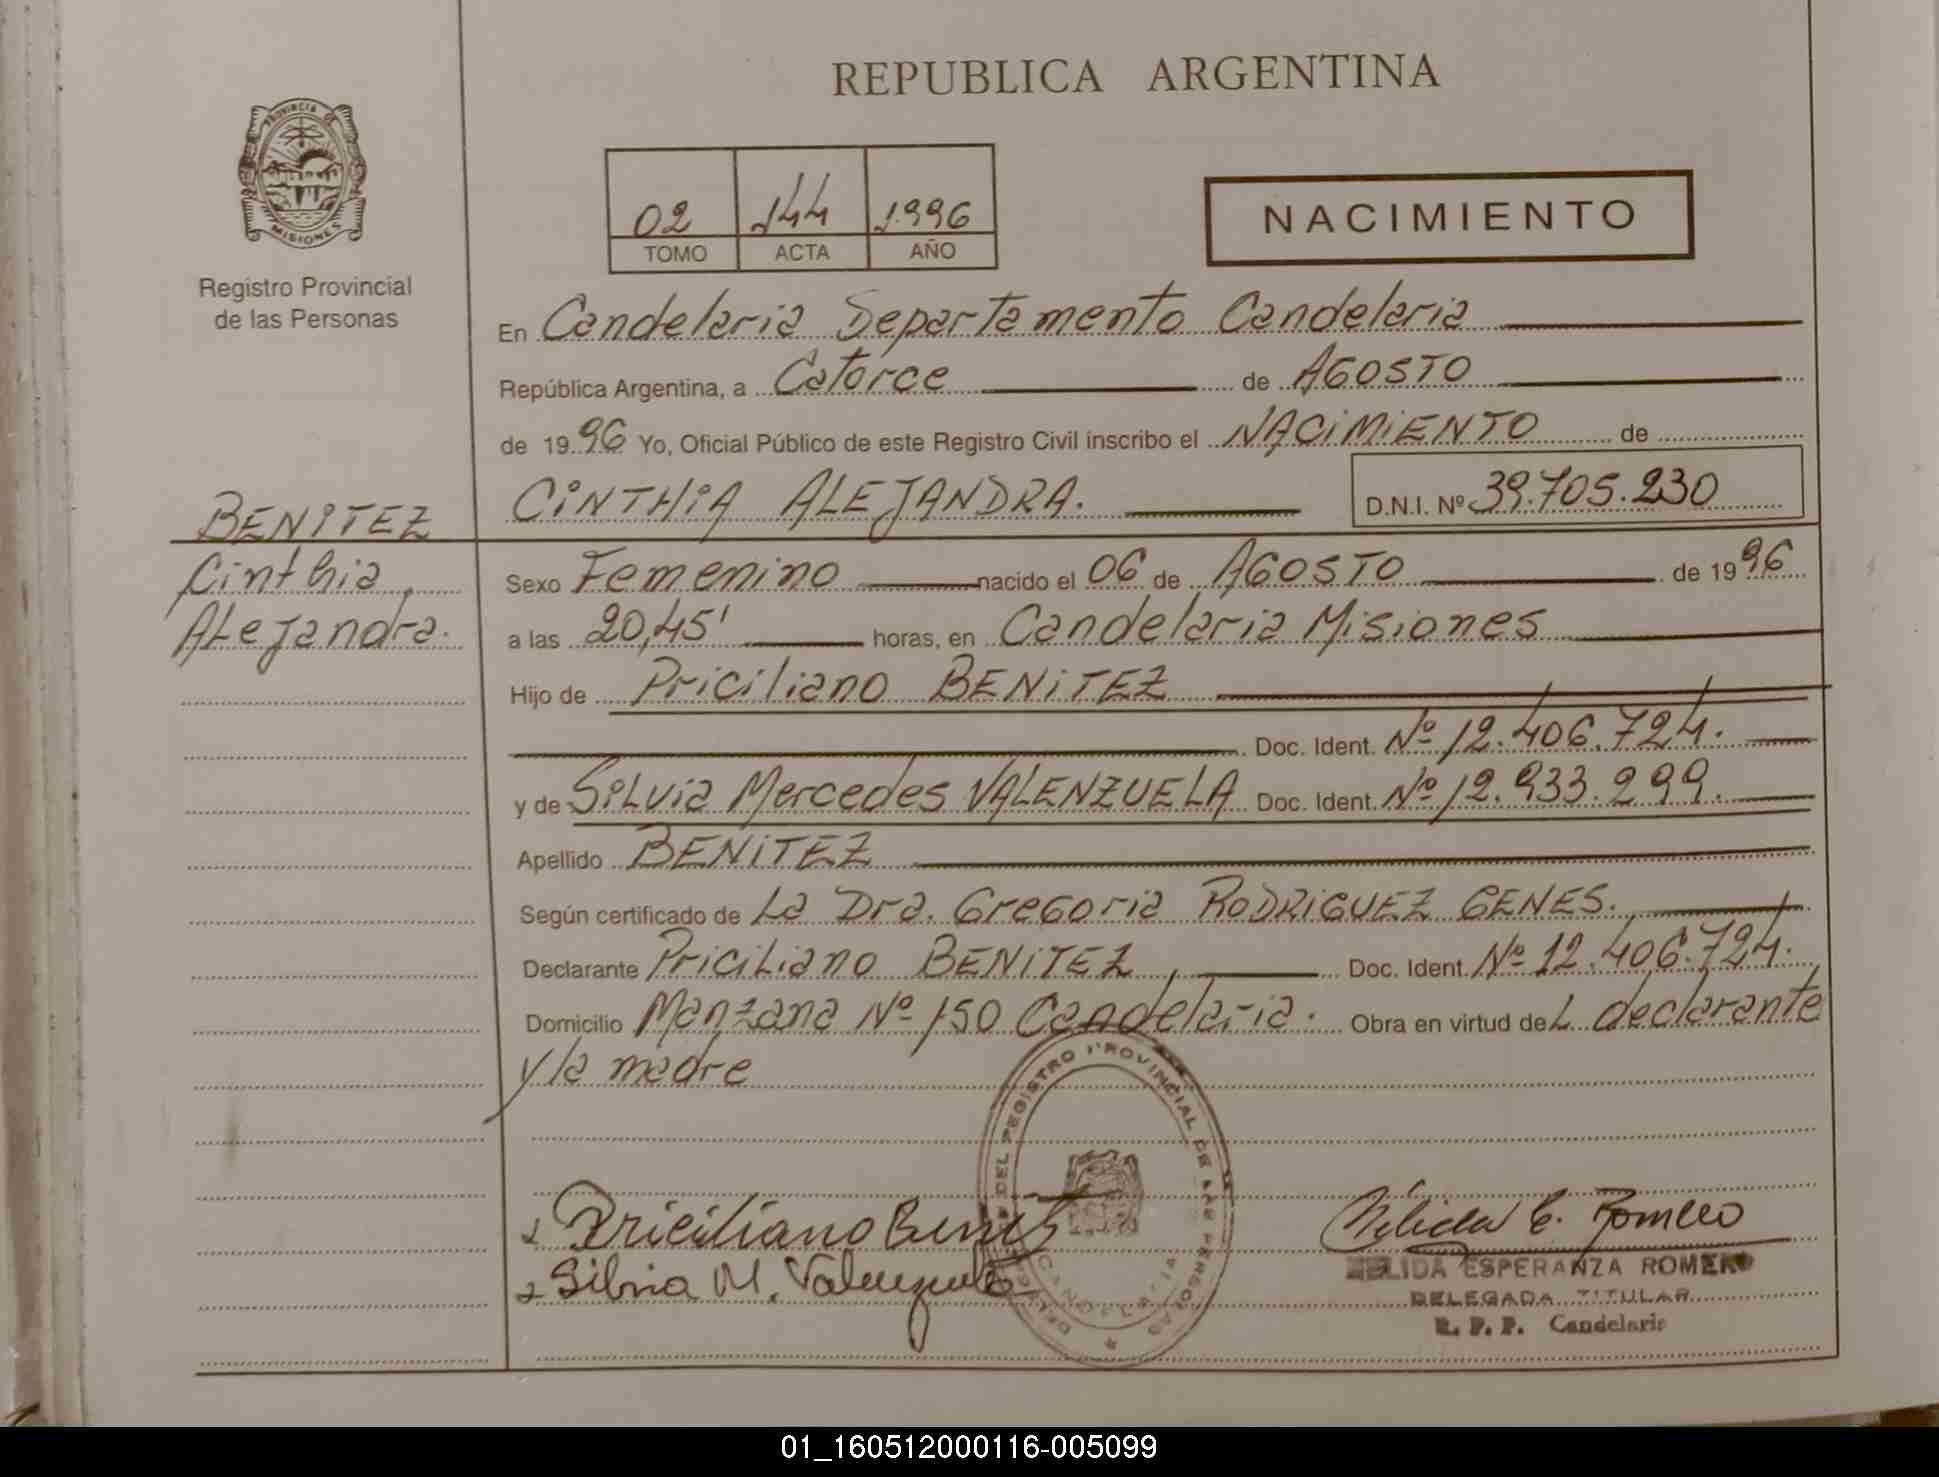 REPUBLICA ARGENTINA
PROVINCIA DE
MISIONES
Registro Provincial
de las Personas
02 144 1996
TOMO ACTA AÑO
NACIMIENTO
En Candelaria Departamento Candelaria
República Argentina, a Catorce de AGOSTO
de 1996 Yo, Oficial Público de este Registro Civil inscribo el NACIMIENTO de
BENITEZ
Cinthia
Alejandra.
CINTHIA ALEJANDRA. D.N.I. Nº 39.705.230
Sexo Femenino nacido el 06 de AGOSTO de 1996
a las 20,45' horas, en Candelaria Misiones
Hijo de Priciliano BENITEZ
Doc. Ident. Nº 12.406.724.
y de Silvia Mercedes VALENZUELA Doc. Ident. Nº 12.933.299.
Apellido BENITEZ
Según certificado de La Dra. Gregoria RODRIGUEZ GENES.
Declarante Priciliano BENITEZ, Doc. Ident. Nº 12.406.724.
Domicilio Manzana Nº 150 Candelaria. Obra en virtud deL declarante
y la madre
DEL REGISTRO PROVINCIAL DE LAS PERSONAS
Priciliano Benitez
Silvia M. Valenzuela
Nélida E. Romero
NELIDA ESPERANZA ROMERO
DELEGADA TITULAR
R. P. P. Candelaria
01_160512000116-005099